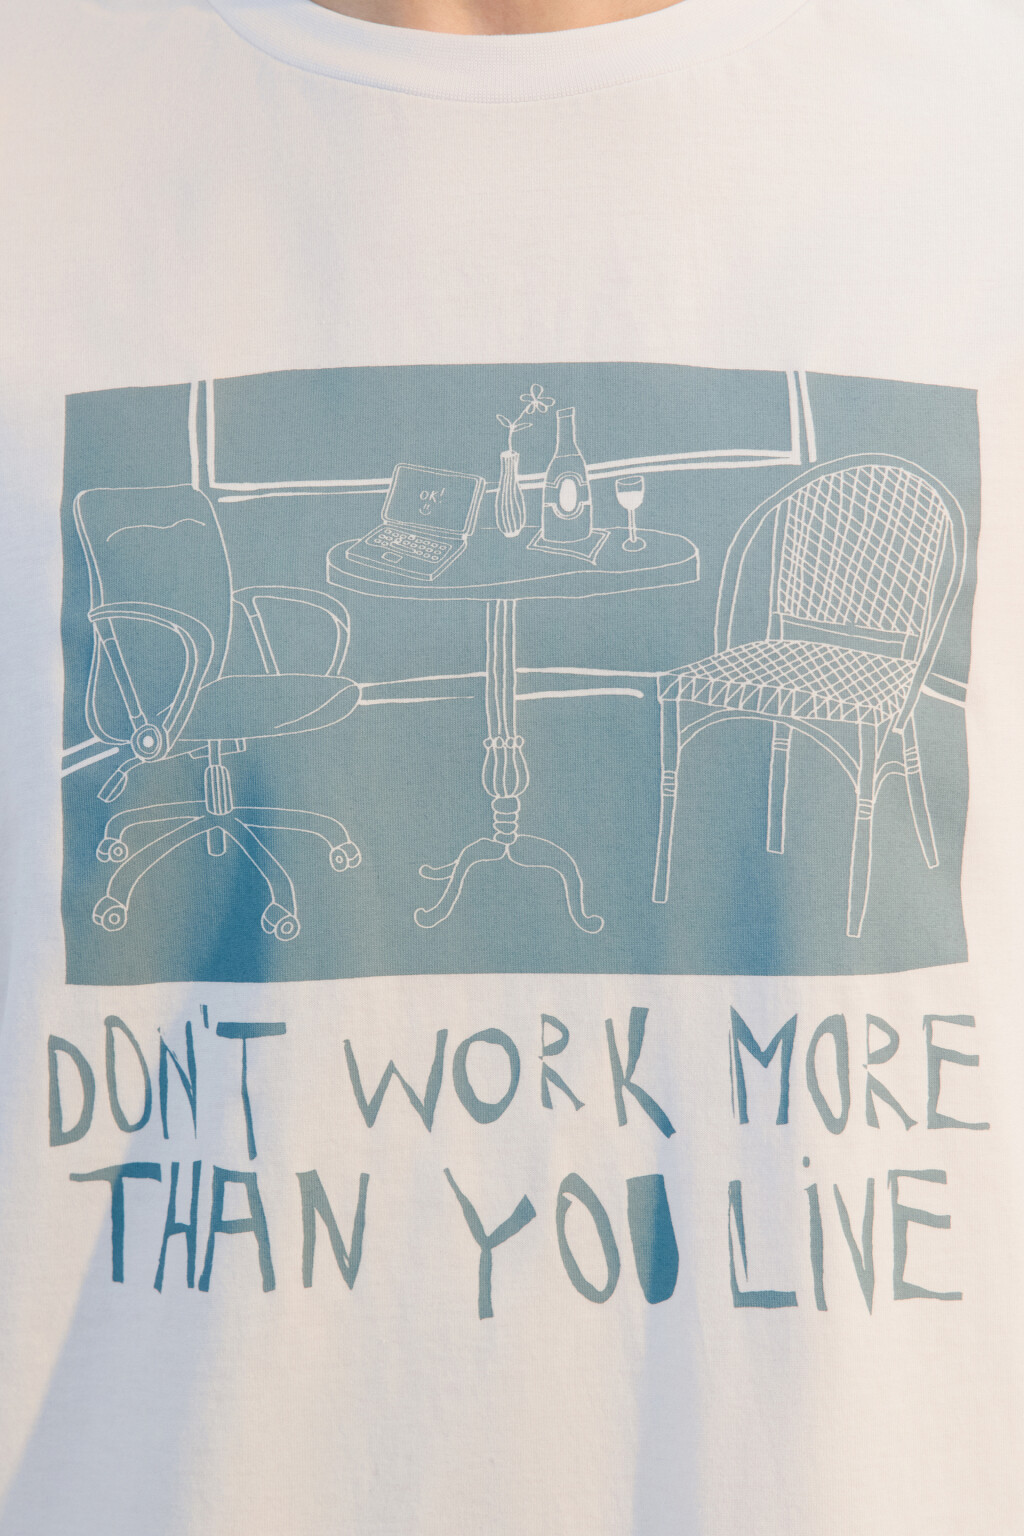 OK!
DON'T WORK MORE
THAN YOU LIVE